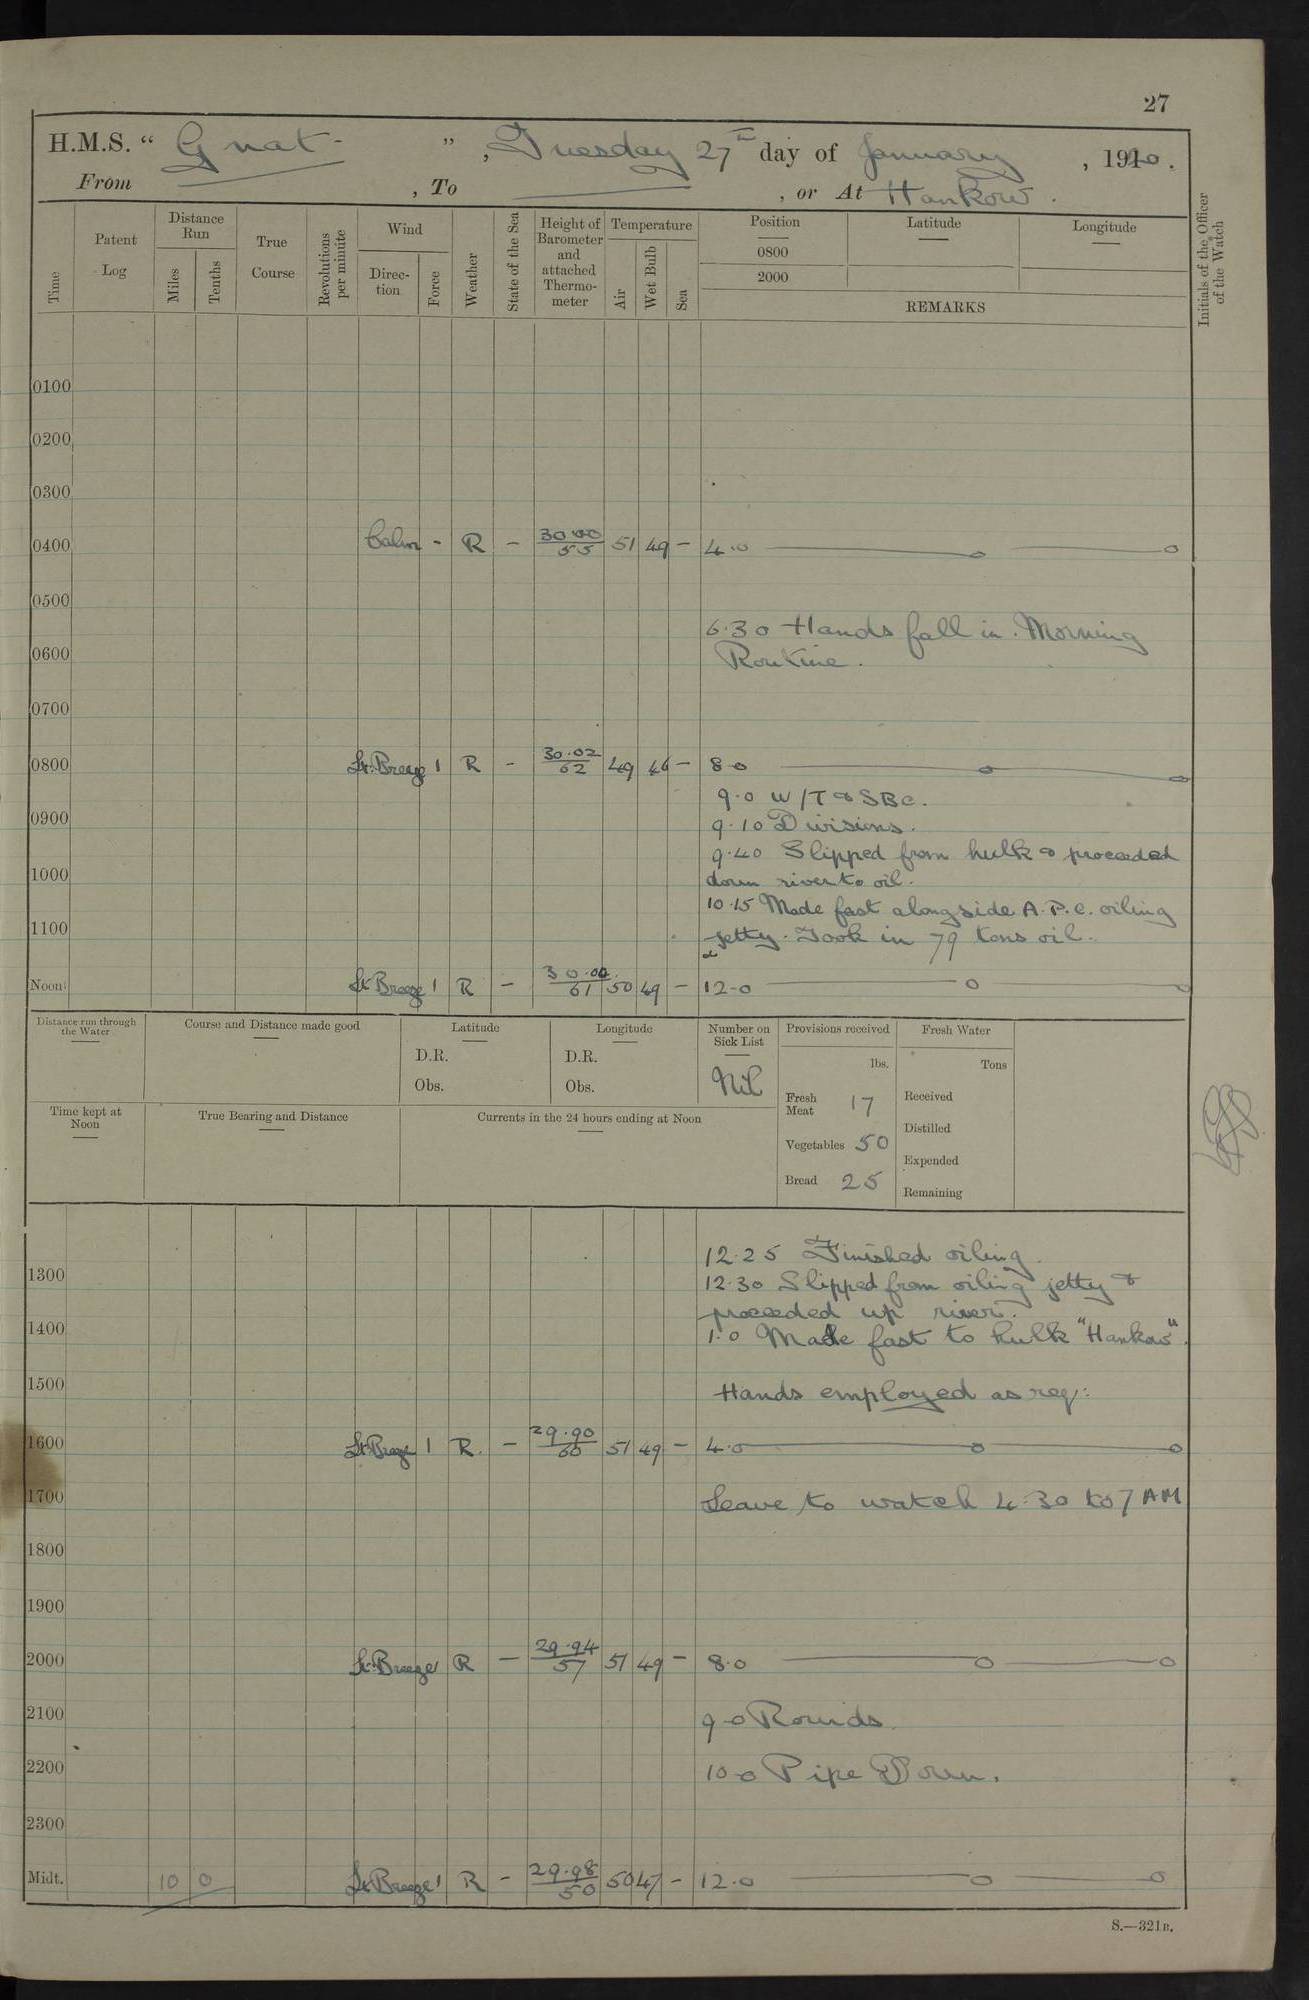 27
H.M.S. " Gnat ", Tuesday 27th day of January, 1920.
From , To , or At Hankow.
Time
Patent Log
Distance Run
Miles
Tenths
True Course
Revolutions per minute
Wind
Direc-tion
Force
Weather
State of the Sea
Height of Barometer and attached Thermo-meter
Temperature
Air
Wet Bulb
Sea
Position
0800
2000
Latitude
Longitude
REMARKS
Initials of the Officer of the Watch
0100
0200
0300
0400 Calm - R - 30.00/55 51 49 - 4.0
0500
6.30 Hands fall in. Morning
0600
Routine.
0700
0800 Lt. Breeze 1 R - 30.02/62 49 46 - 8.0
9.0 W/T & SBC.
0900
9.10 Divisions.
9.40 Slipped from hulk & proceeded
1000
down river to oil.
10.15 Made fast alongside A.P.C. oiling
1100
jetty. Took in 79 tons oil.
Noon Lt Breeze 1 R - 30.00/61 50 49 - 12.0
Distance run through the Water
Course and Distance made good
Latitude
D.R.
Obs.
Longitude
D.R.
Obs.
Number on Sick List
Nil
Provisions received
lbs.
Fresh Meat 17
Vegetables 50
Bread 25
Fresh Water
Tons
Received
Distilled
Expended
Remaining
Time kept at Noon
True Bearing and Distance
Currents in the 24 hours ending at Noon
12.25 Finished oiling.
1300
12.30 Slipped from oiling jetty &
proceeded up river.
1400
1.0 Made fast to hulk "Hankow".
1500
Hands employed as req:
1600 Lt Breeze 1 R. - 29.90/60 51 49 - 4.0
1700
Leave to watch 4.30 to 7 AM
1800
1900
2000 Lt. Breeze 1 R - 29.94/57 51 49 - 8.0
2100
9.0 Rounds
2200
10.0 Pipe Down.
2300
Midt. 10 0 Lt Breeze 1 R - 29.98/50 50 47 - 12.0
S.—321B.